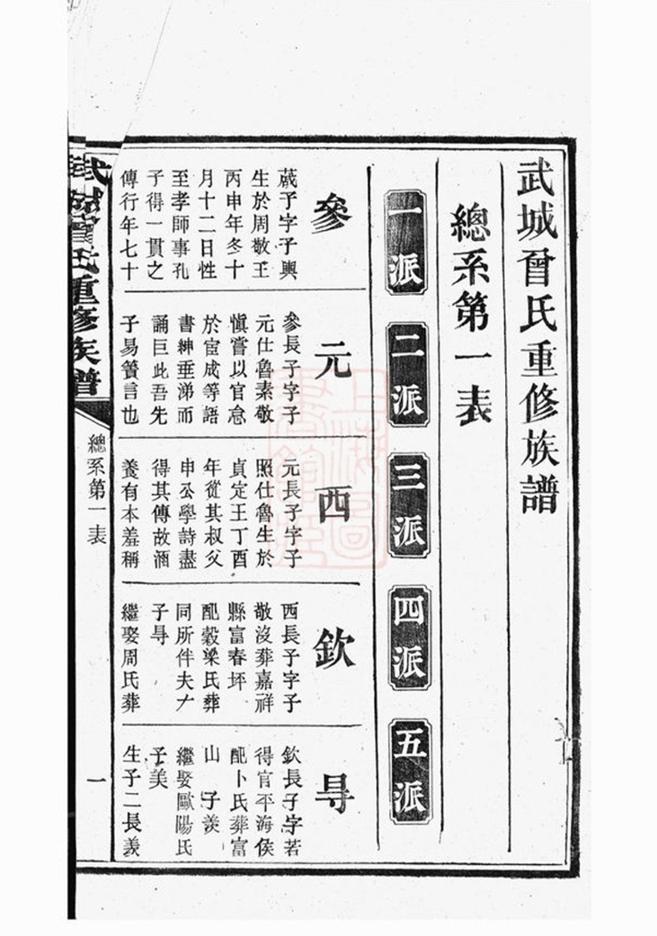 武城曾氏重修族譜
總系第一表
一派
二派
三派
四派
五派
參
蒧子字子輿
生於周敬王
丙申年冬十
月十二日性
至孝師事孔
子得一貫之
傳行年七十
元
參長子字子
元仕魯素敬
慎嘗以官怠
於宦成等語
書紳垂涕而
誦曰此吾先
子易簀言也
西
元長子字子
照仕魯生於
貞定王丁酉
年從其叔父
申公學詩盡
得其傳故涵
養有本羞稱
欽
西長子字子
敬沒葬嘉祥
縣富春坪
配穀梁氏葬
同所伴夫𠂇
子㝵
繼娶周氏葬
㝵
欽長子字若
得官平海侯
配卜氏葬富
山 子羨
繼娶歐陽氏
子美
生子二長羨
武城曾氏重修族譜
總系第一表
一